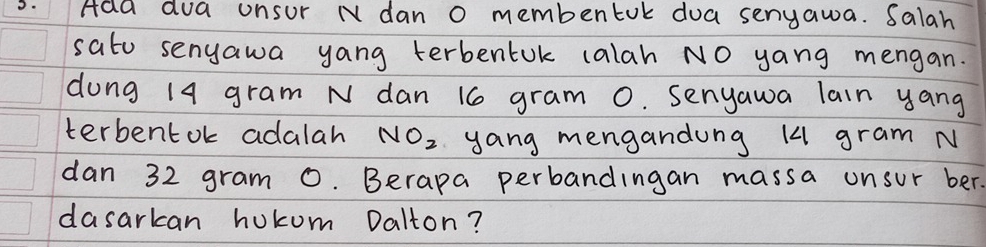 3. Ada dua unsur N dan O membentuk dua senyawa. Salah
satu senyawa yang terbentuk ialah NO yang mengan-
dung 14 gram N dan 16 gram O. Senyawa lain yang
terbentuk adalah NO₂ yang mengandung 14 gram N
dan 32 gram O. Berapa perbandingan massa unsur ber-
dasarkan hukum Dalton?